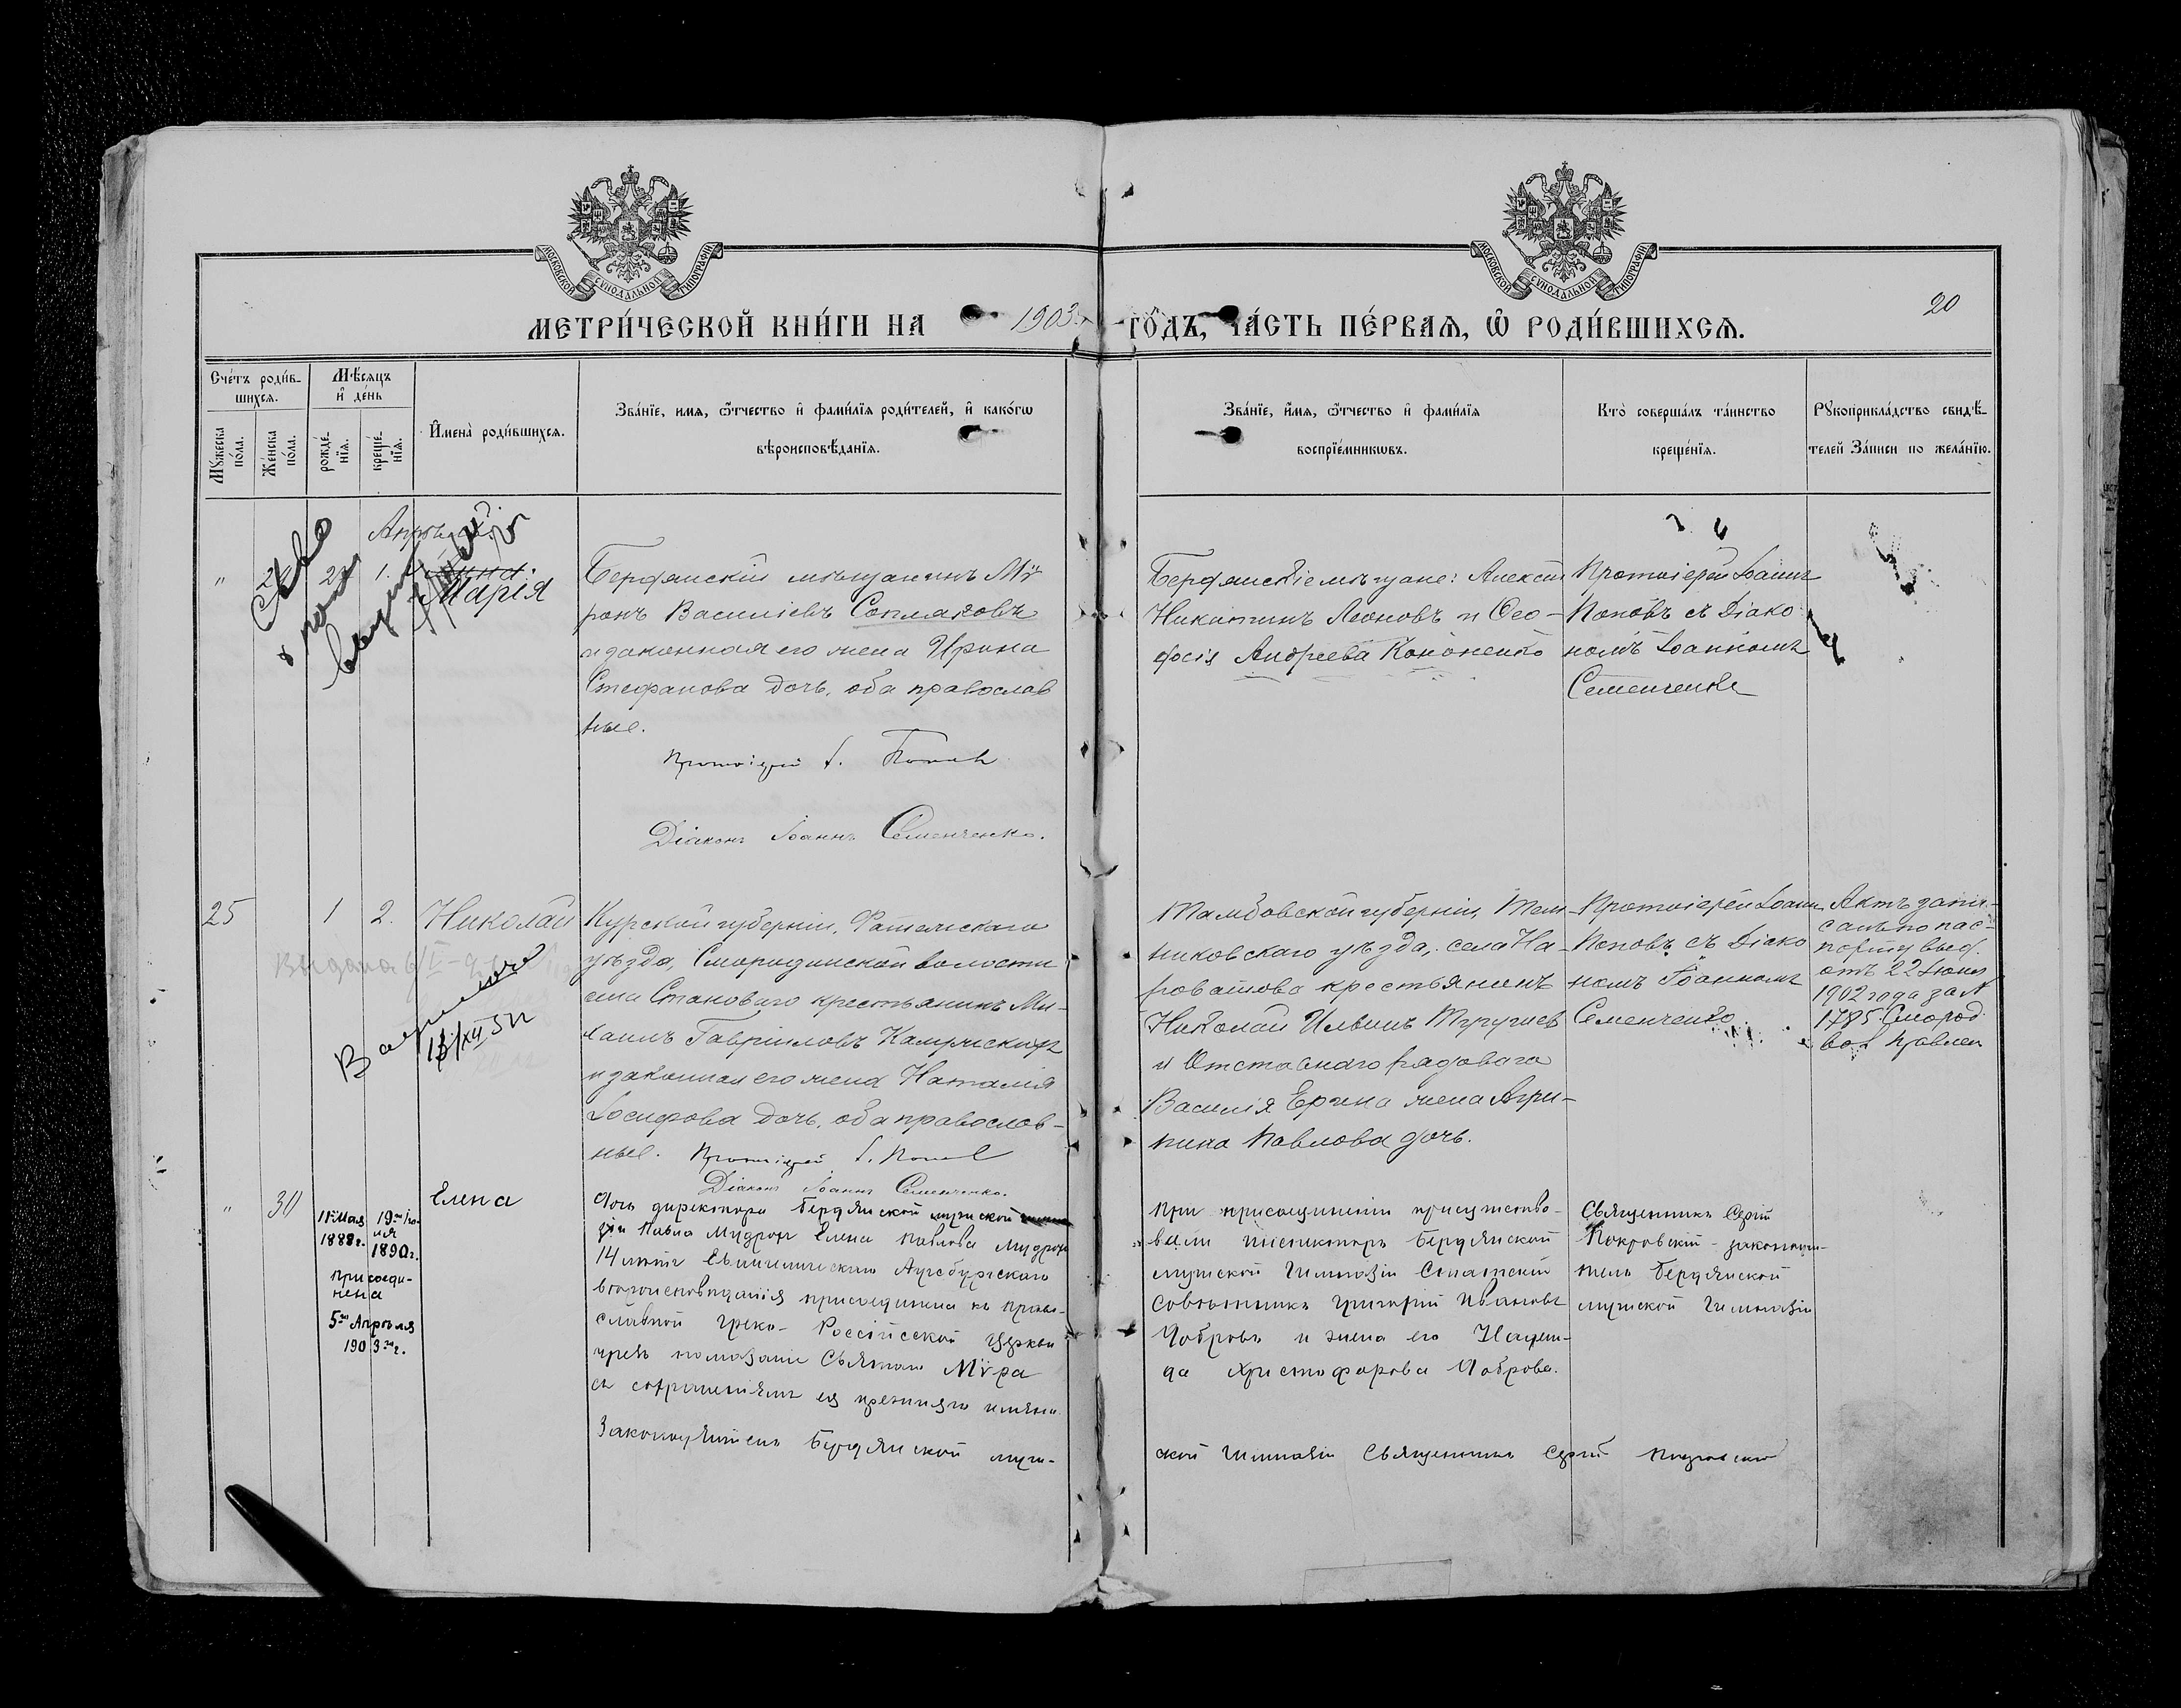 МОСКОВСКОЙ СУНОДАЛЬНОЙ ТИПОГРАФІИ
МОСКОВСКОЙ СУНОДАЛЬНОЙ ТИПОГРАФІИ
20
МЕТРИ́ЧЕСКОЙ КНИ́ГИ НА 1903 ГО́ДЪ, ЧА́СТЬ ПЕ́РВАѦ, Ѡ҆ РОДИ́ВШИХСѦ.
Сче́тъ роди́в-
шихсѧ.
Мꙋжеска по́ла.
Же́нска по́ла.
Мѣ́сѧцъ
и҆ де́нь
рожде́-
нїѧ.
креще́-
нїѧ.
И҆мена̀ роди́вшихсѧ.
Зва́нїе, имѧ, ѻ҆́тчество и҆ фами́лїѧ роди́телей, и҆ како́гѡ
вѣроисповѣ́данїѧ.
Зва́нїе, и҆́мѧ, ѻ҆́тчество и҆ фами́лїѧ
воспрїе́мникѡвъ.
Кто̀ соверша́лъ та́инство
креще́нїѧ.
Рꙋкоприкла́дство свидѣ́-
телей За́писи по жела́нїю.
Апрѣль
" 1.
Марія
Бердянскій мѣщанинъ Мѵ
ронъ Василіевъ Сопляковъ
и законная его жена Ирина
Стефанова дочь, оба православ
ные.
Протоіерей І. Поповъ
Діаконъ Іоаннъ Семенченко.
Бердянскіе мѣщане: Алексѣй
Никитинъ Леоновъ и Ѳео-
досія Андреева Кононенко
Протоіерей Іоаннъ
Поповъ съ Діако
номъ Іоанномъ
Семенченко
25 1 2. Николай
13/XII 5
Курской губерніи, Фатежскаго
уѣзда, Смородинской волости
села Становаго крестьянинъ Ми-
хаилъ Гавріиловъ
и законная его жена Наталія
Іосифова дочь, оба православ-
ные. Протоіерей І. Поповъ
Діаконъ Іоаннъ Семенченко.
Тамбовской губерніи, Тем-
никовскаго уѣзда, села На-
роватова крестьянинъ
Николай Ильинъ
и Отставнаго рядоваго
Василія Ерина жена Агри-
пина Павлова дочь.
Протоіерей Іоаннъ
Поповъ съ Діако
номъ Іоанномъ
Семенченко.
Актъ запи-
санъ по пас-
порту выд.
отъ 22 Іюня
1902 года за №
1785. Смород.
вол. правлен
" 30
11 Мая
1888 г.
19го Ію-
ня
1890 г.
присоеди-
нена
5го Апрѣля
1903го г.
Елена
Дочь директора Бердянской мужской гимна
зіи Павла Мудрохъ Елена Павлова Мудрохъ
14 лѣтъ Евангелическаго Аугсбургскаго
вѣроисповѣданія присоединена къ Право-
славной Греко-Россійсской Церкви
чрезъ помазаніе Святымъ Мѵра
съ сохраненіемъ ея прежняго имени.
Законоучитель Бердянской муж-
При присоединеніи присутство-
вали инспекторъ Бердянской
мужской Гимназіи Статскій
Совѣтникъ Григорій Ивановъ
Бобровъ и жена его Надеж-
да Христофорова Боброва.
ской Гимназіи Священникъ Сергій Покровскій
Священникъ Сергій
Покровскій - законоучи-
тель Бердянской
мужской Гимназіи